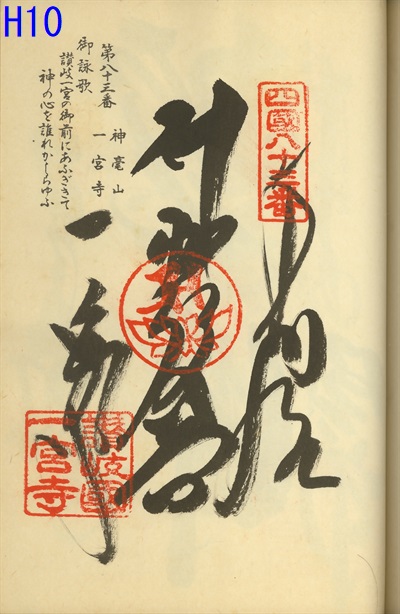 H10
四國八十三番
奉納
聖観音
一宮寺
讃岐國
一宮寺
第八十三番
神毫山
一宮寺
御詠歌
讃岐一宮の御前にあふぎきて
神の心を誰れかしらゆふ